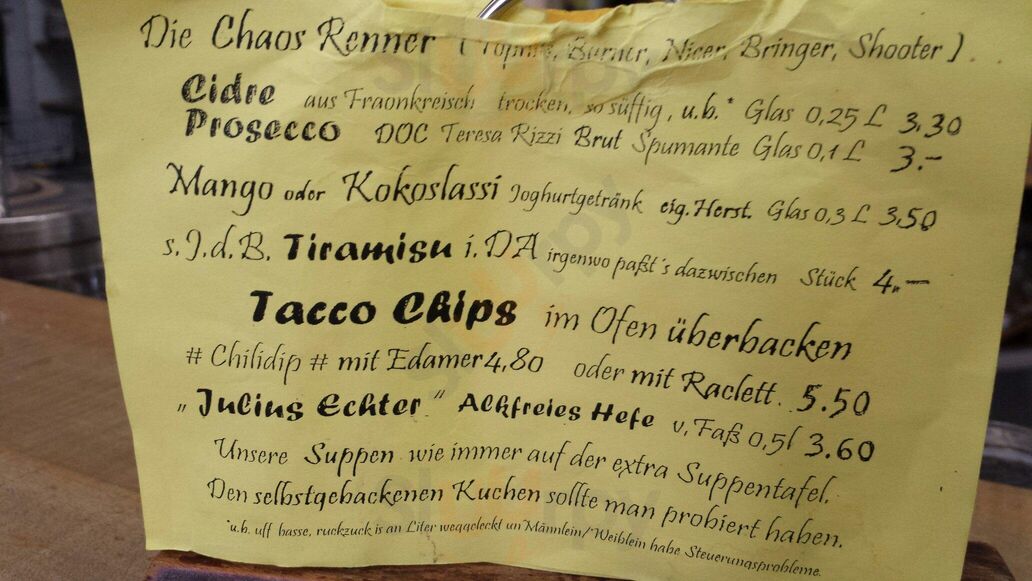 Die Chaos Renner ( Burner, Nicer, Bringer, Shooter )
Cidre aus Fraonkreisch trocken, so süffig, u.b.* Glas 0,25 L 3,30
Prosecco DOC Teresa Rizzi Brut Spumante Glas 0,1 L 3.-
Mango oder Kokoslassi Joghurtgetränk eig. Herst. Glas 0,3 L 3,50
s.I.d.B. Tiramisu i.DA irgenwo paßt's dazwischen Stück 4,-
Tacco Chips im Ofen überbacken
# Chilidip # mit Edamer 4,80 oder mit Raclett. 5.50
„Julius Echter" Alkfreies Hefe v. Faß 0,5l 3.60
Unsere Suppen wie immer auf der extra Suppentafel.
Den selbstgebackenen Kuchen sollte man probiert haben.
*u.b. uff basse, ruckzuck is an Liter weggeleckt un Männlein/Weiblein habe Steuerungsprobleme.